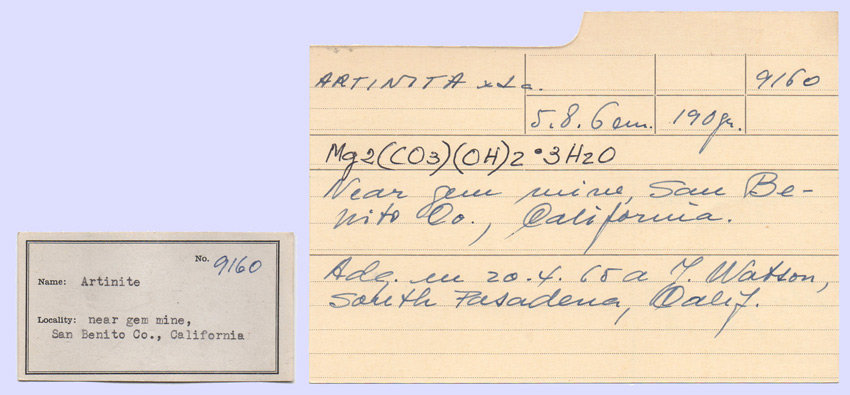 ARTINITA xla.
9160
5.8.6 cm.
190 gr.
Mg2(CO3)(OH)2•3H2O
Near gem mine, San Be-
nito Co., California.
Adq. en 20.4.65 a J. Watson,
South Pasadena, Calif.
No. 9160
Name: Artinite
Locality: near gem mine,
San Benito Co., California